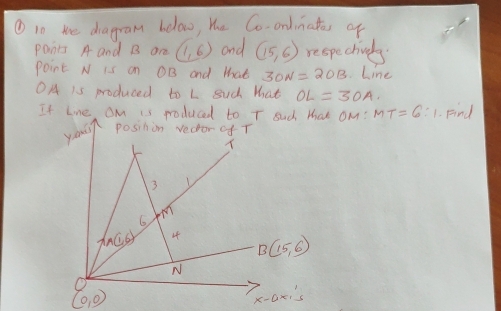 ① In the diagram below, the Co-ordinates of
points A and B are (1,6) and (15,6) respectively.
Point N is on OB and that 3ON = 2OB. Line
OA is produced to L such that OL = 3OA.
If Line OM is produced to T such that OM : MT = 6 : 1. Find
position vector of T
y-axis
L
T
3
1
M
6
A(1,6)
4
B(15,6)
N
O
(0,0)
x-axis